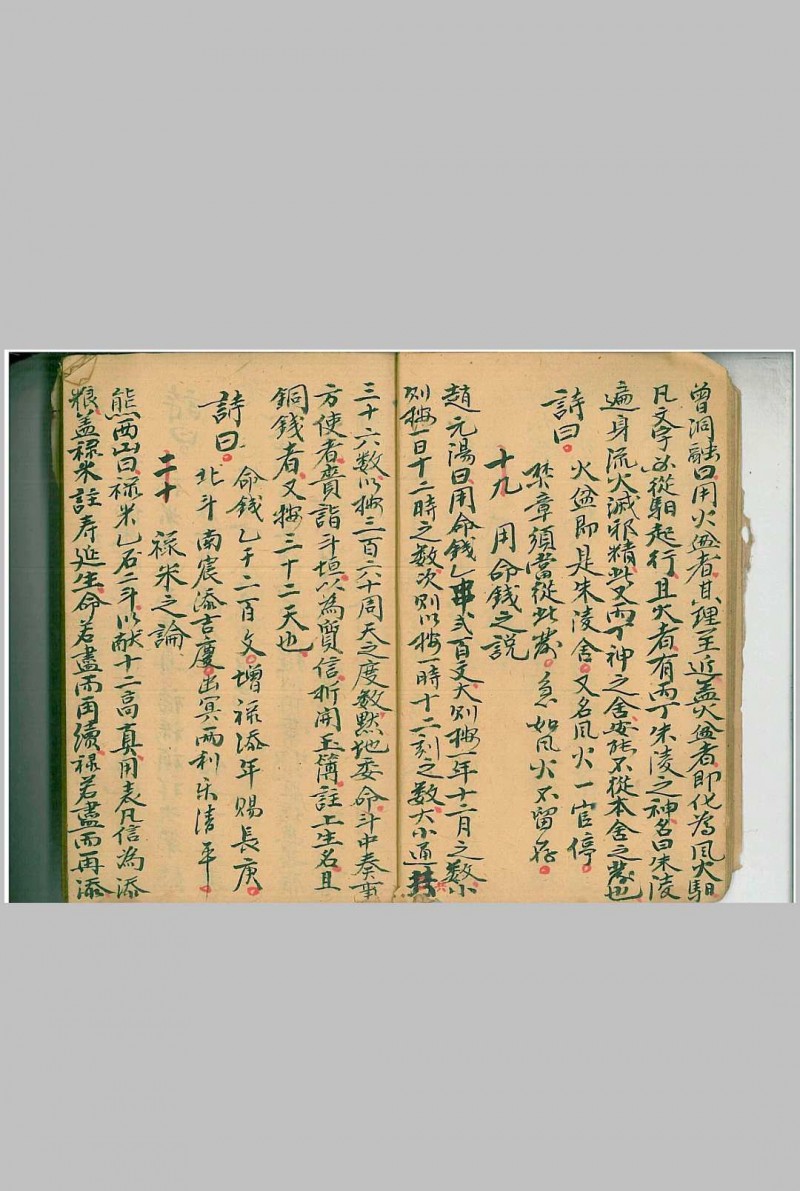 曾洞融曰用火盆者其理至近蓋火盆者即化為風火馹
凡文字必從馹起行且火者有丙丁朱陵之神名曰朱陵
遍身流火滅邪精此又丙丁神之舍安能不從本舍之發也
詩曰
火盆即是朱陵舍又名風火一官停
焚章須當從此發急如風火不留存
十九 用命钱之説
趙元陽曰用命钱乙串弍百文大則按一年十二月之數小
則按一日十二時之数次則以按一時十二刻之数大小通共
三十六数以按三百六十周天之度数黙地委命斗中奏事
方使者賫詣斗垣以為質信折開玉簿註上生名且
銅钱者又按三十二天也
詩曰
命钱乙千二百文增禄添年赐長庚
北斗南宸添吉慶出冥兩利乐清平
二十 禄米之論
熊西山曰禄米乙石二斗以献十二高真用表凡信為添
粮盖禄米註寿延生命若盡而再續禄若盡而再添